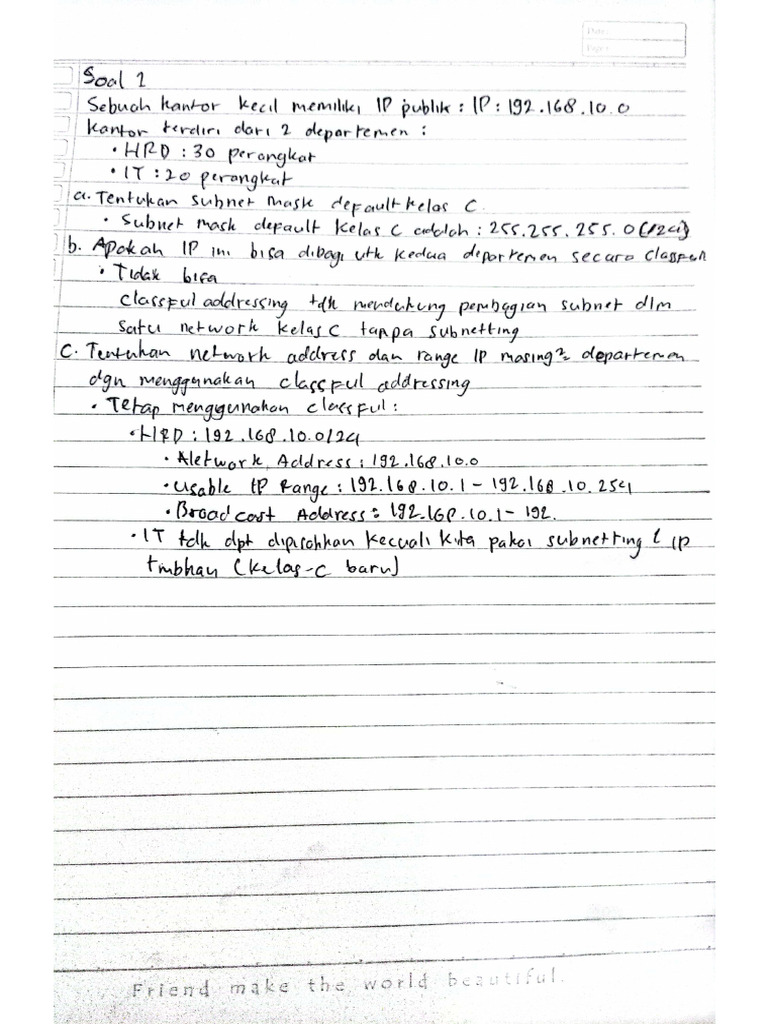 Date:
Page:
Soal 1
Sebuah kantor kecil memiliki IP publik : IP : 192.168.10.0
kantor terdiri dari 2 departemen :
• HRD : 30 perangkat
• IT : 20 perangkat
a. Tentukan subnet mask default kelas C
• Subnet mask default kelas C adalah : 255.255.255.0 (/24)
b. Apakah IP ini bisa dibagi utk kedua departemen secara classfull
• Tidak bisa
Classful addressing tdk mendukung pembagian subnet dlm
satu network kelas C tanpa subnetting
C. Tentukan network address dan range IP masing² departemen
dgn menggunakan classful addressing
• Tetap menggunakan classful :
• HRD : 192.168.10.0/24
• Network Address : 192.168.10.0
• Usable IP Range : 192.168.10.1 - 192.168.10.254
• Broadcast Address : 192.168.10.1 - 192.
• IT tdk dpt dipisahkan kecuali kita pakai subnetting IP
(kelas-C baru)
Friend make the world beautiful.